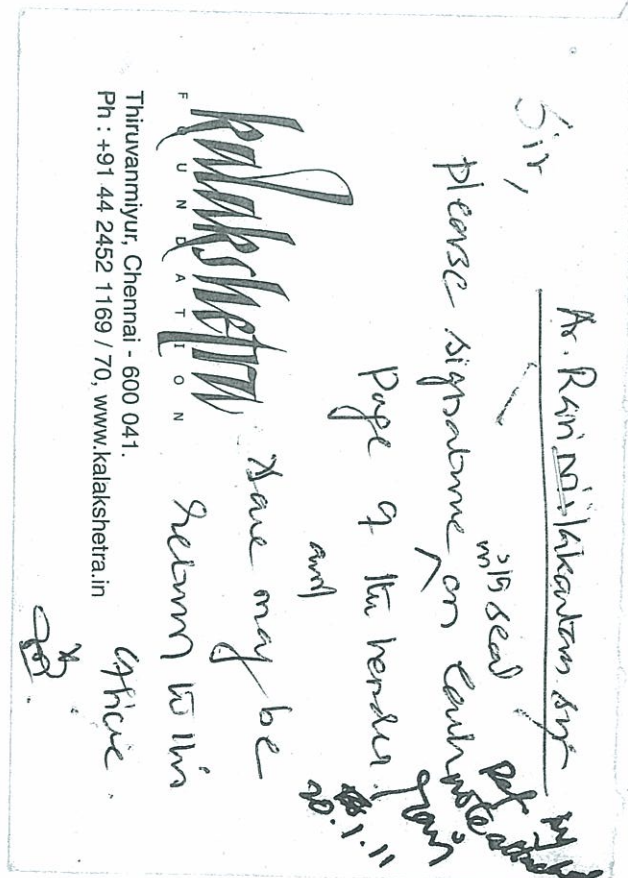 Ar. Ravi Nilakantan Sir
Sir,
please signature on each
with seal
Page of the tender.
and
Same may be
return to this
office
Ref my
note attached
20.1.11
kalakshetra
FOUNDATION
Thiruvanmiyur, Chennai - 600 041.
Ph : +91 44 2452 1169 / 70, www.kalakshetra.in